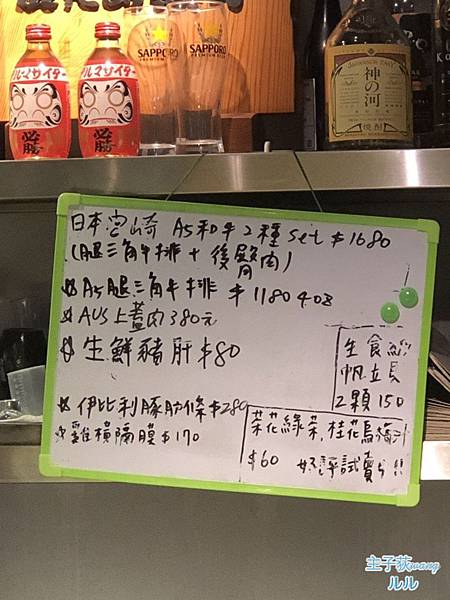 ダルマサイダー
必勝
必勝
SAPPORO
SAPPORO
PREMIUM BEER
神の河
焼酎
日本宮崎 A5和牛2種 Set $1680
(腿三角牛排 + 後臀肉)
A5腿三角牛排 $1180 4oz
AUS上蓋肉380元
生鮮豬肝$80
伊比利豚肋條$280
雞橫隔膜$170
生食級
帆立貝
2顆150
茉花綠茶.桂花烏梅汁
$60 好評試賣!!
主子荻wang
ルル